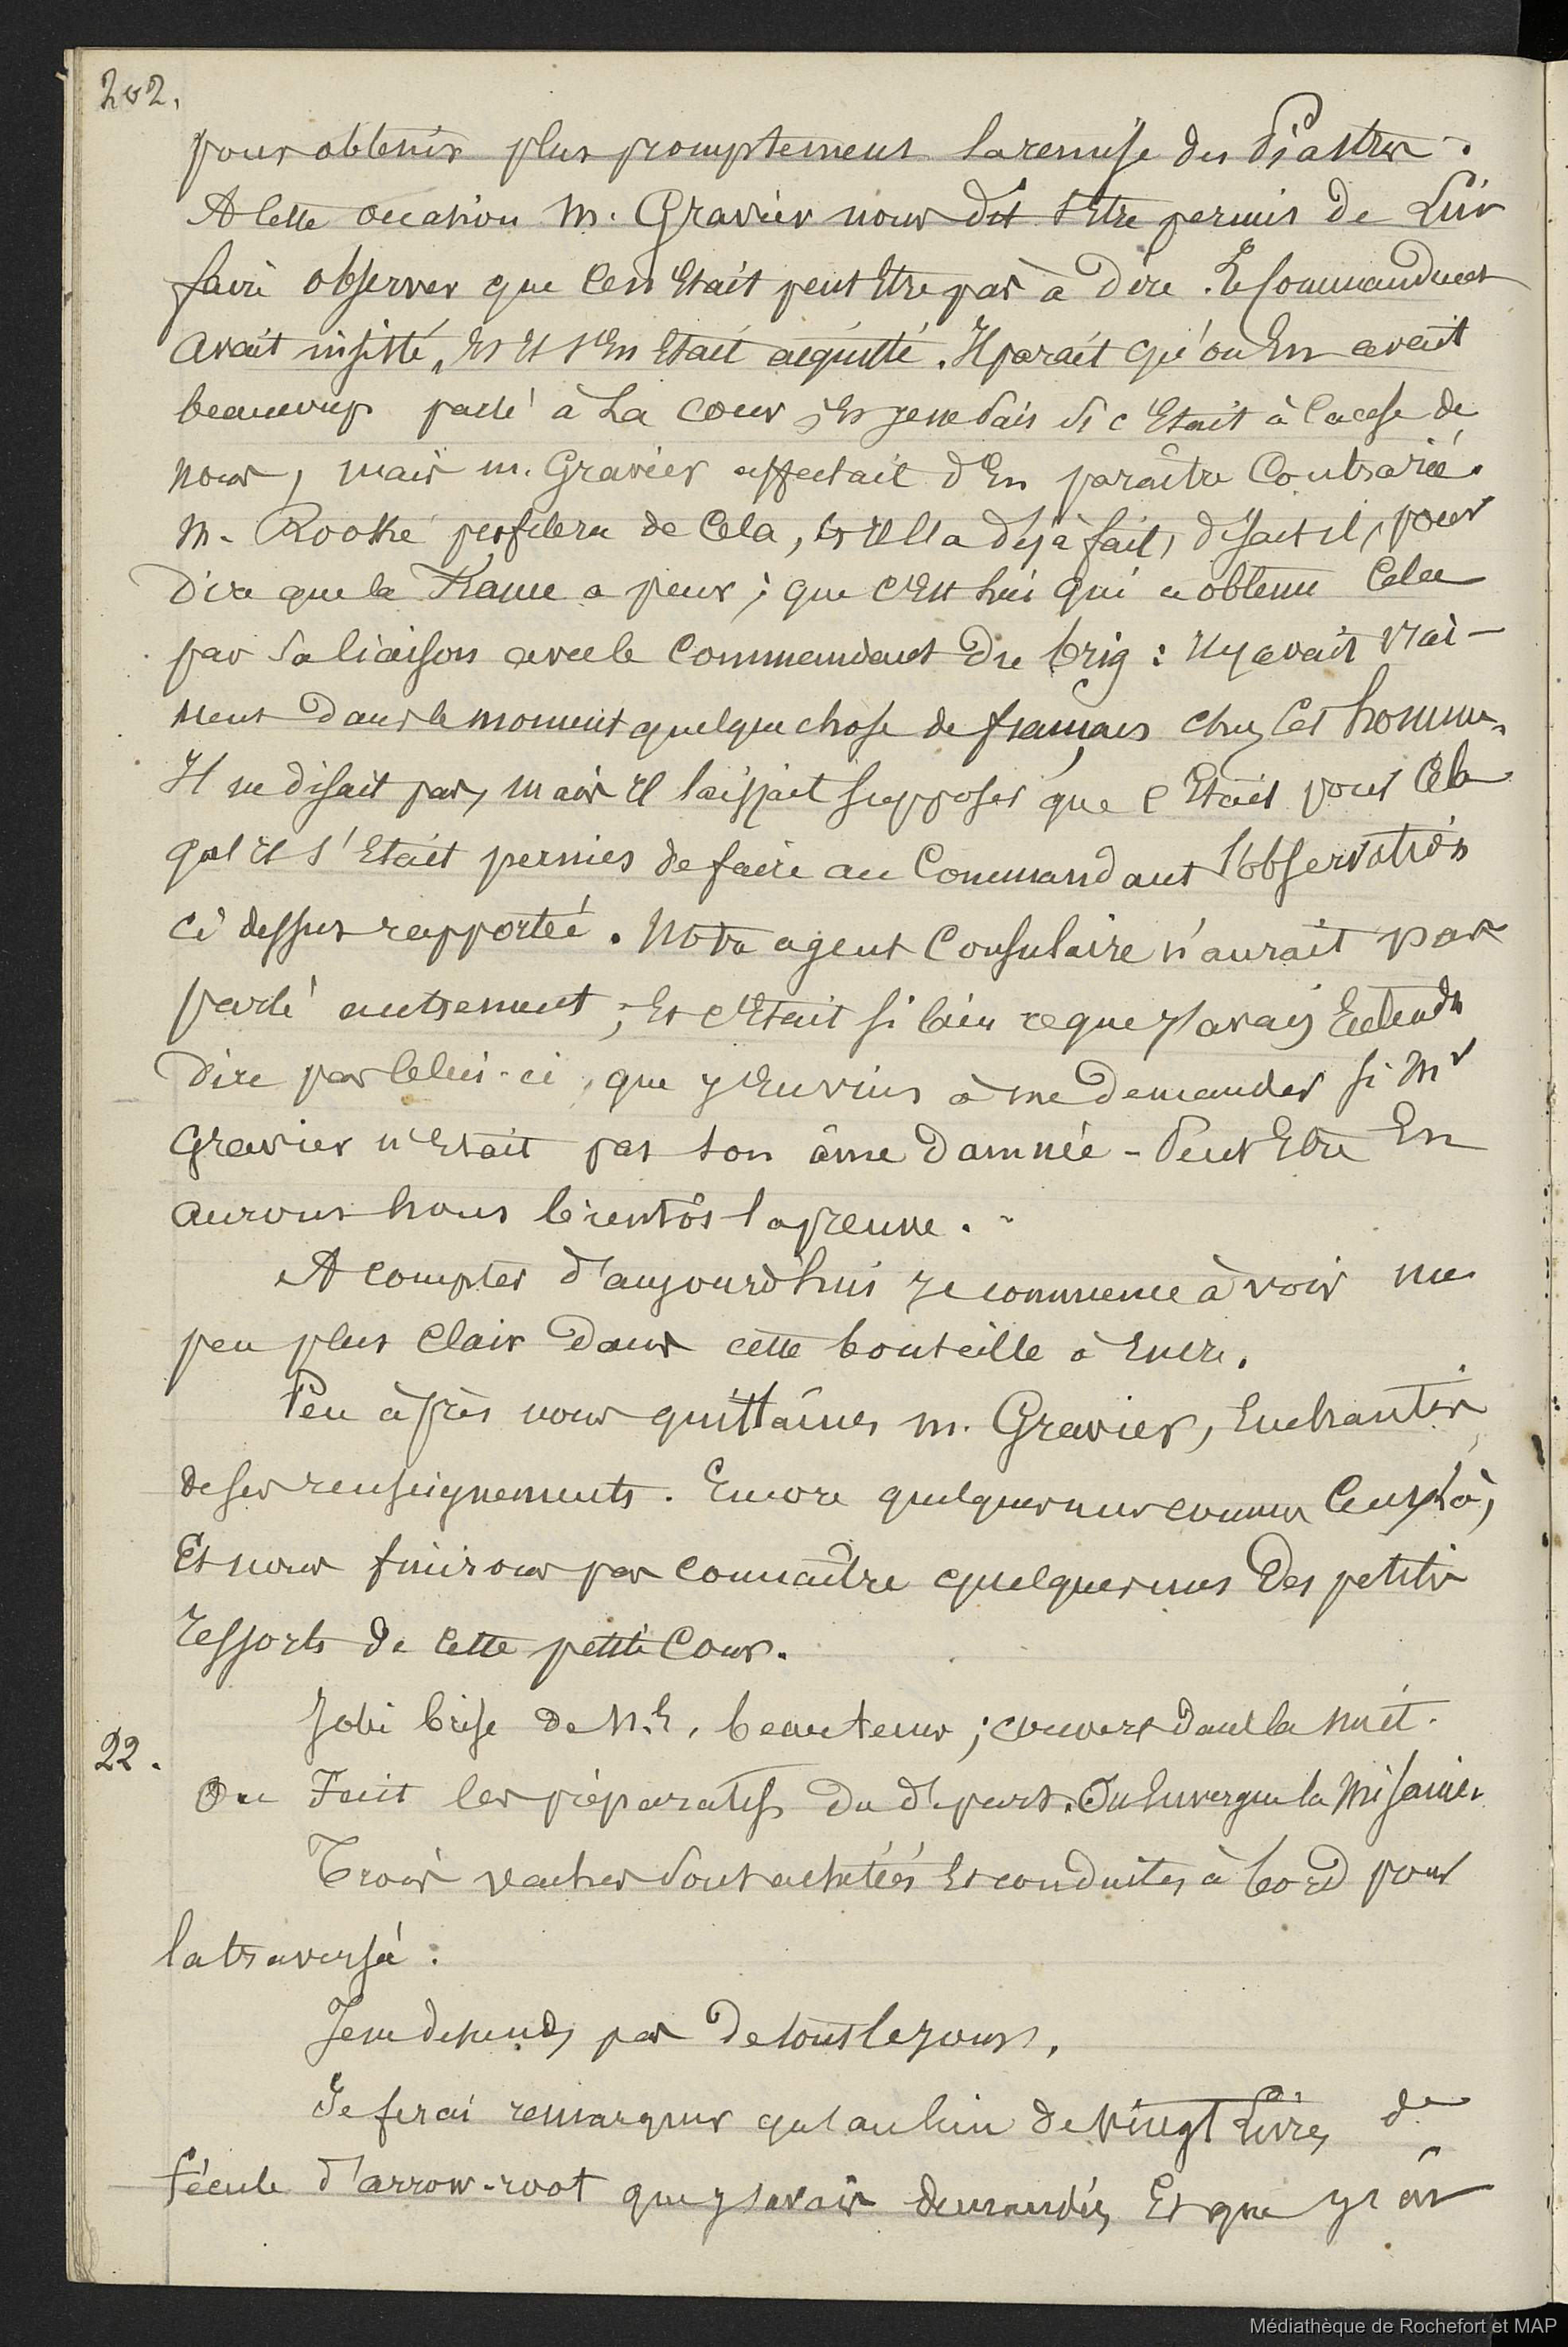 202.
pour obtenir plus promptement la remise des Piastres.
A cette occasion M. Gravier nous dit s'Etre permis de Lui
faire observer que cen Etait peut Etre pas à dire. Le Commandant
avait insisté, Et Il s'En Etait acquitté. Il parait qu'on En avait
beaucoup parlé à La cour; Et je ne sais si c'Etait à cause de
nous, mais m. Gravier affectait d'En paraître Contrarié.
M. Rooke profitera de Cela, Et Il l'a déjà fait, disait il, pour
Dire que la Reine a peur; que c'Est lui qui a obtenu Cela
par sa liaison avec le Commandant Du brig: Il y avait vrai-
ment dans le moment quelque chose de français chez Cet homme.
Il ne disait pas, mais Il laissait supposer que c'Etait pour Cela
qu'il s'Etait permis de faire au Commandant l'observation
ci dessus rapportée. Notre agent Consulaire n'aurait pas
parlé autrement; Et c'Etait si bien ce que j'avais Entendu
Dire par Celui-ci, que j'En vins à me Demander si Mr
Gravier n'Etait pas son âme Damnée - Peut Etre En
aurons nous bientôt la preuve.
A compter d'aujourd'hui je commence à voir un
peu plus Clair Dans cette bouteille à Encre.
Peu après nous quittâmes m. Gravier, Enchantés
de ses renseignements. Encore quelques uns comme Ceux là,
Et nous finirons par connaître quelques uns Des petits
ressorts de cette petite Cour.
Jolie brise de N.E. beau tems; couvert dans la nuit.
22.
On Fait les préparatifs du départ. On Envergue la Misaine.
Trois vaches sont achetées Et conduites à bord pour
la traversée.
Je ne descends pas de tout le jour.
Je ferai remarquer qu'au lieu de vingt Livres de
fécule d'arrow-root que j'avais demandées, Et que j'ai